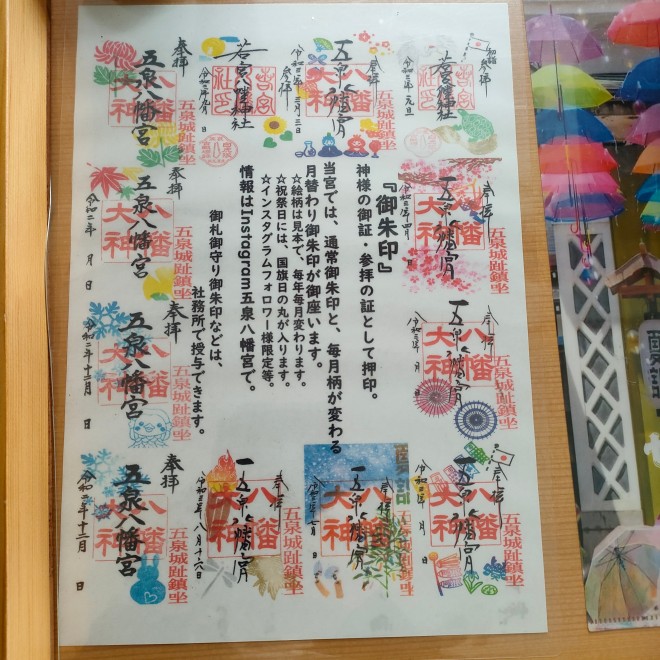 『御朱印』
神様の御証・参拝の証として押印。
当宮では、通常御朱印と、毎月柄が変わる
月替わり御朱印が御座います。
☆絵柄は見本で、毎年毎月変わります。
☆祝祭日には、国旗日の丸が入ります。
☆インスタグラムフォロワー様限定等。
情報はInstagram五泉八幡宮で。
御札御守り御朱印などは、
社務所で授与できます。
初詣
参拝
五泉城趾鎮坐
若宮八幡神社
令和三年元旦
奉拝
五泉城趾鎮坐
八幡
大神
五泉八幡宮
令和三年三月三日
参拝
若宮八幡神社
奉拝
五泉城趾鎮坐
八幡
大神
五泉八幡宮
奉拝
五泉城趾鎮坐
八幡
大神
五泉八幡宮
奉拝
五泉城趾鎮坐
八幡
大神
五泉八幡宮
奉拝
五泉城趾鎮坐
八幡
大神
五泉八幡宮
令和二年 月 日
奉拝
五泉城趾鎮坐
八幡
大神
五泉八幡宮
令和二年十二月 日
奉拝
五泉城趾鎮坐
八幡
大神
五泉八幡宮
奉拝
八幡
大神
五泉八幡宮
奉拝
五泉城趾鎮坐
八幡
大神
五泉八幡宮
令和三年八月十六日
奉拝
五泉城趾鎮坐
八幡
大神
五泉八幡宮
令和二年十二月 日